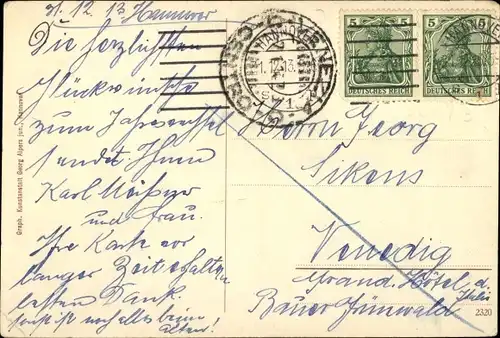 31.12.13 Hannover
Die herzlichsten
Glückwünsche
zum Jahreswechsel
sendet Ihnen
Karl Meißner
und Frau.
Ihre Karte vor
langer Zeit erhalten
besten Dank.
sonst ist noch alles beim
alten!
Herrn Georg
Sikens
Venedig
Grand Hôtel d'Italie
Bauer Grünwald
5 5
DEUTSCHES REICH DEUTSCHES REICH
HANNOVER
VENEZIA
Graph. Kunstanstalt Georg Alpers jun., Hannover
2320